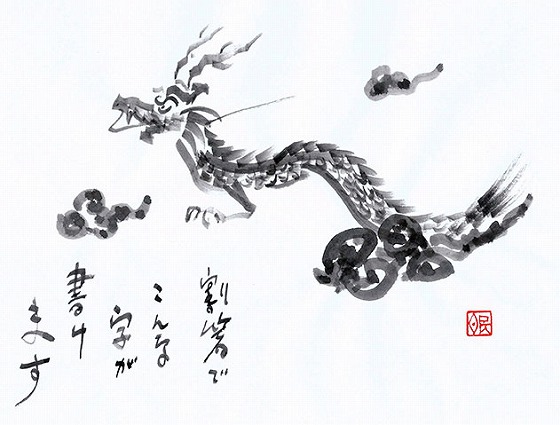 割箸で
こんな
字が
書け
ます